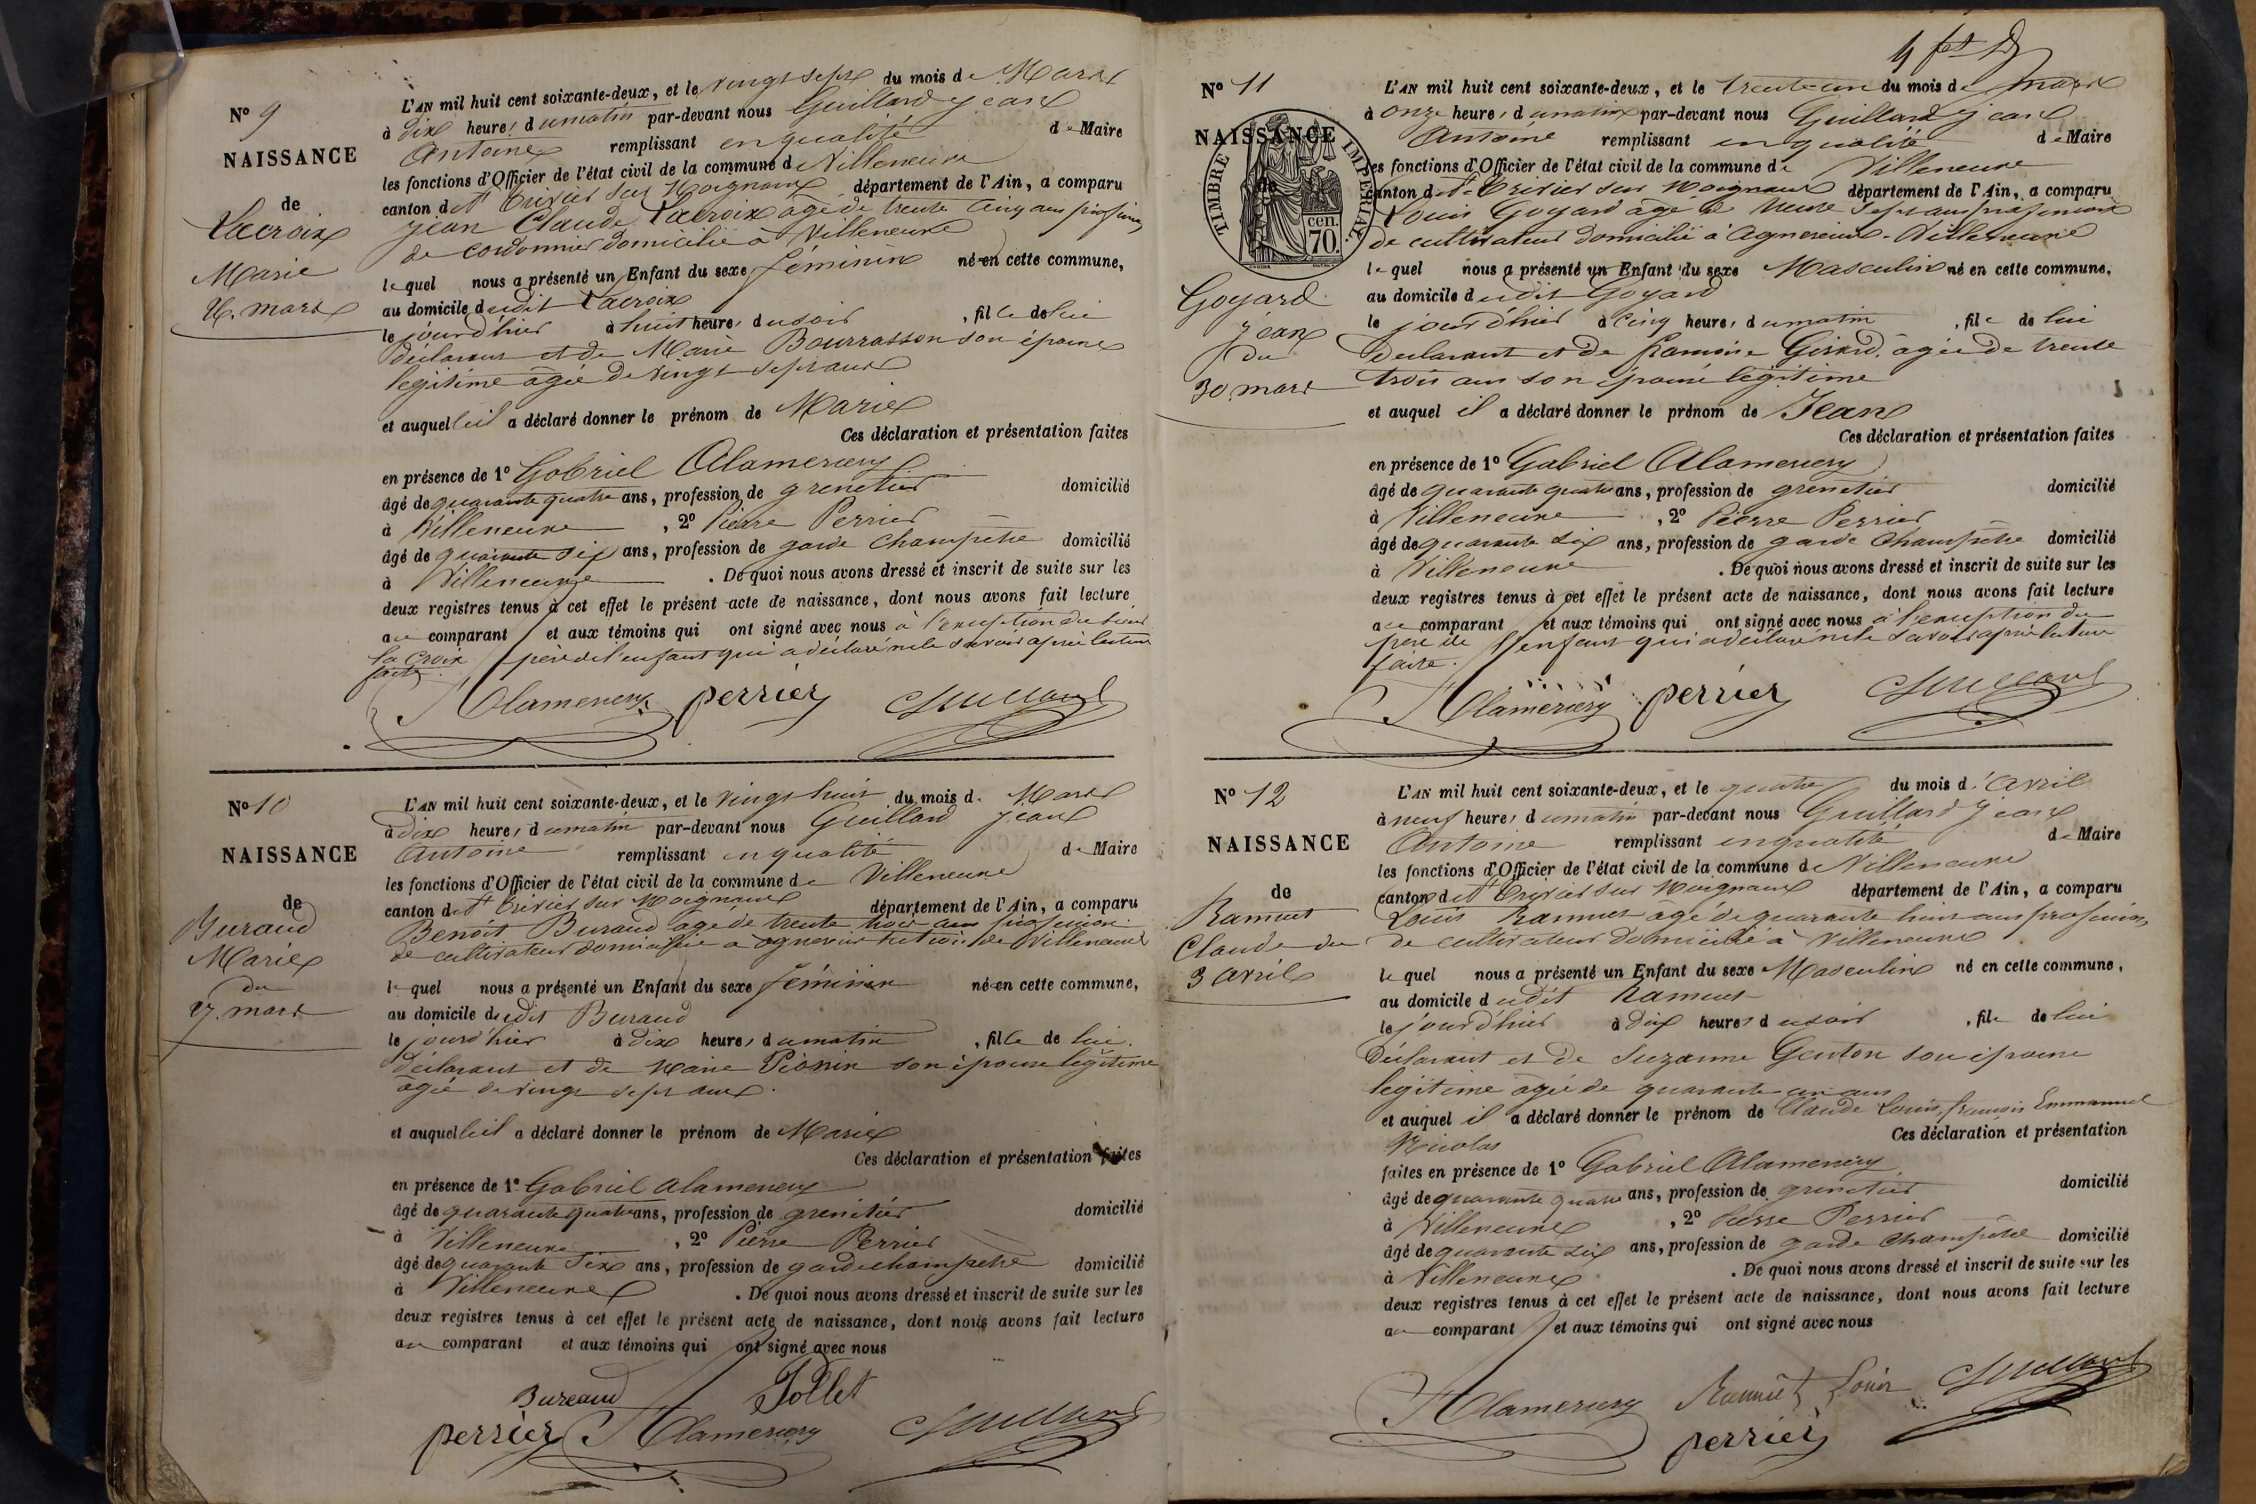 Nº 9
NAISSANCE
de
Lacroix
Marie
26. mars
L'AN mil huit cent soixante-deux, et le vingt sept du mois de Mars
à dix heures du matin par-devant nous Guillard jean
Antoine remplissant en qualité de Maire
les fonctions d'Officier de l'état civil de la commune de Villeneuve
canton de St Trivier sur Moignans département de l'Ain, a comparu
jean Claude Lacroix âgé de trente cinq ans profession
de cordonnier domicilié à Villeneuve
lequel nous a présenté un Enfant du sexe féminin né en cette commune,
au domicile dudit Lacroix
le jourd'hier à huit heures du soir, fille de lui
déclarant et de Marie Bourrasson son épouse
légitime âgée de vingt sept ans
et auquel il a déclaré donner le prénom de Marie
Ces déclaration et présentation faites
en présence de 1º Gabriel Alamercery
âgé de quarante quatre ans, profession de grenetier domicilié
à Villeneuve, 2º Pierre Perrier
âgé de quarante six ans, profession de garde champêtre domicilié
à Villeneuve. De quoi nous avons dressé et inscrit de suite sur les
deux registres tenus à cet effet le présent acte de naissance, dont nous avons fait lecture
au comparant et aux témoins qui ont signé avec nous à l'exception du sieur
la Croix père de l'enfant qui a déclaré ne le savoir après lecture
faite.
Alamercery perrier Guillard
Nº 10
NAISSANCE
de
Buraud
Marie
du
27. mars
L'AN mil huit cent soixante-deux, et le vingt huit du mois de Mars
à dix heures du matin par-devant nous Guillard jean
Antoine remplissant en qualité de Maire
les fonctions d'Officier de l'état civil de la commune de Villeneuve
canton de St Trivier sur Moignans département de l'Ain, a comparu
Benoit Buraud age de trente trois ans profession
de cultivateur domicilié a agnereins section de Villeneuve
lequel nous a présenté un Enfant du sexe féminin né en cette commune,
au domicile dudit Buraud
le jourd'hier à dix heures du matin, fille de lui.
déclarant et de Marie son épouse légitime
agée de vingt sept ans.
et auquel il a déclaré donner le prénom de Marie
Ces déclaration et présentation faites
en présence de 1º Gabriel alamercery
âgé de quarante quatre ans, profession de grenetier domicilié
à Villeneuve, 2º Pierre Perrier
âgé de quarante six ans, profession de garde champêtre domicilié
à Villeneuve. De quoi nous avons dressé et inscrit de suite sur les
deux registres tenus à cet effet le présent acte de naissance, dont nous avons fait lecture
au comparant et aux témoins qui ont signé avec nous
Bureaud Pollet
perrier Alamercery Guillard
Nº 11
NAISSANCE
de
TIMBRE IMPÉRIAL.
cen.
70.
Goyard
jean
du
30 mars
L'AN mil huit cent soixante-deux, et le trente-un du mois de mars
à onze heures du matin par-devant nous Guillard jean
Antoine remplissant en qualité de Maire
les fonctions d'Officier de l'état civil de la commune de Villeneuve
canton de St Trivier sur Moignans département de l'Ain, a comparu
Louis Goyard âgé de trente sept ans profession
de cultivateur domicilié à Agnereins-Villeneuve
lequel nous a présenté un Enfant du sexe Masculin né en cette commune,
au domicile dudit Goyard
le jourd'hier à cinq heures du matin, fils de lui
déclarant et de françoise Girard, agée de trente
trois ans son épouse légitime
et auquel il a déclaré donner le prénom de Jean
Ces déclaration et présentation faites
en présence de 1º Gabriel Alamercery
âgé de quarante quatre ans, profession de grenetier domicilié
à Villeneuve, 2º Pierre Perrier
âgé de quarante six ans, profession de garde champêtre domicilié
à Villeneuve. De quoi nous avons dressé et inscrit de suite sur les
deux registres tenus à cet effet le présent acte de naissance, dont nous avons fait lecture
au comparant et aux témoins qui ont signé avec nous à l'exception du
père de l'enfant qui a déclaré ne le savoir après lecture
faite.
Alamercery perrier Guillard
Nº 12
NAISSANCE
de
Ramuet
Claude du
3 avril
L'AN mil huit cent soixante-deux, et le quatre du mois d'avril
à neuf heures du matin par-devant nous Guillard jean
Antoine remplissant en qualité de Maire
les fonctions d'Officier de l'état civil de la commune de Villeneuve
canton de St Trivier sur Moignans département de l'Ain, a comparu
Louis Ramuet âgé de quarante huit ans profession
de cultivateur domicilié à Villeneuve
lequel nous a présenté un Enfant du sexe Masculin né en cette commune,
au domicile dudit Ramuet
le jourd'hier à dix heures du soir, fils de lui
Déclarant et de Suzanne Genton son épouse
legitime âgée de quarante un ans
et auquel il a déclaré donner le prénom de Claude Louis françois Emmanuel
Nicolas Ces déclaration et présentation
faites en présence de 1º Gabriel Alamercery
âgé de quarante quatre ans, profession de grenetier domicilié
à Villeneuve, 2º Pierre Perrier
âgé de quarante six ans, profession de garde champêtre domicilié
à Villeneuve. De quoi nous avons dressé et inscrit de suite sur les
deux registres tenus à cet effet le présent acte de naissance, dont nous avons fait lecture
au comparant et aux témoins qui ont signé avec nous
Alamercery Ramuet Louis Guillard
perrier